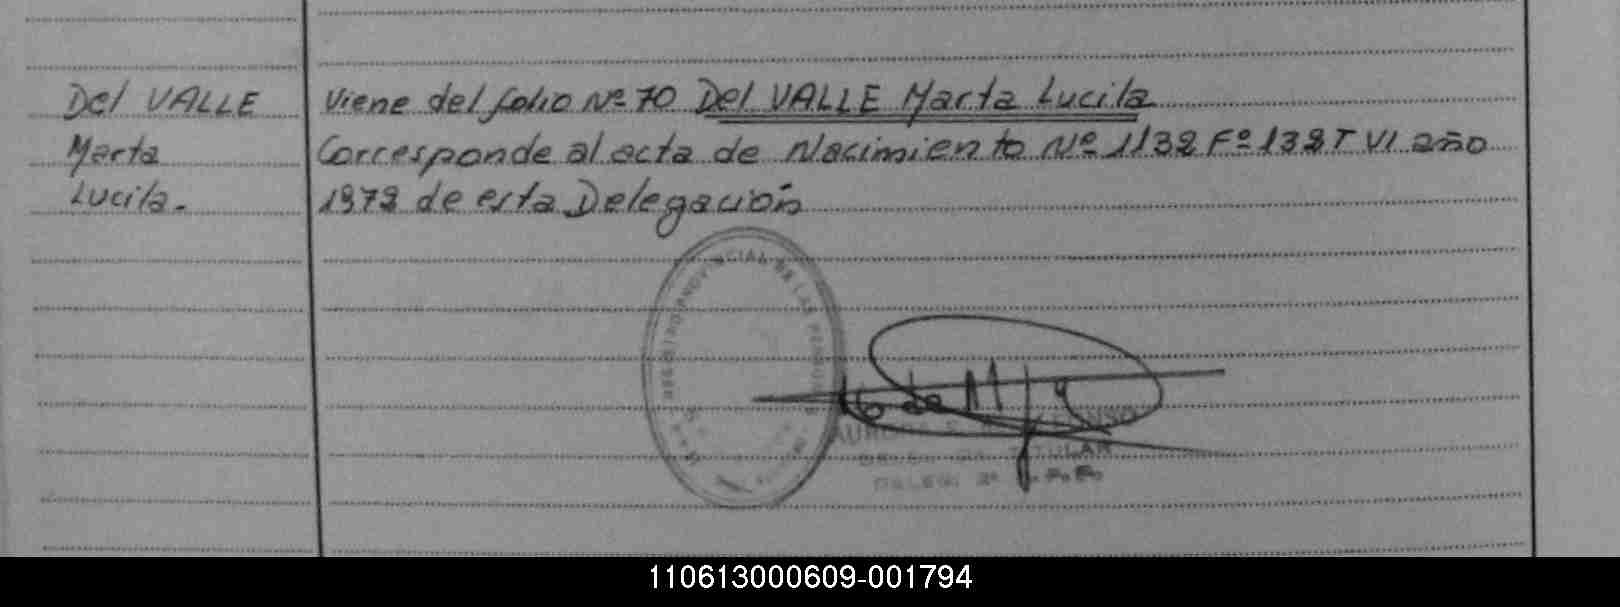 Del VALLE
Marta
Lucila.
Viene del folio Nº 70 Del VALLE Marta Lucila
Corresponde al acta de Nacimiento Nº 1132 Fº 132 T VI año
1972 de esta Delegación
REGISTRO PROVINCIAL DE LAS PERSONAS
TITULAR
110613000609-001794